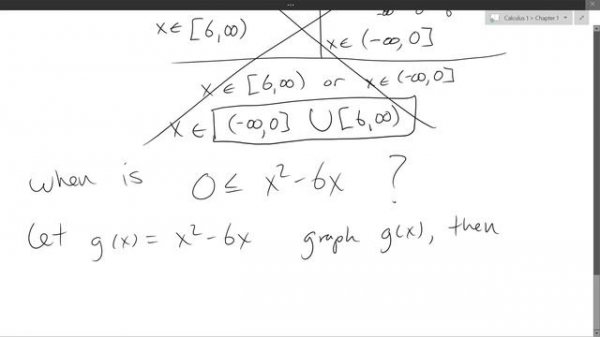 Calculus 1 > Chapter 1
x ∈ [6,∞)
x ∈ (-∞,0]
x ∈ [6,∞) or x ∈ (-∞,0]
x ∈ (-∞,0] ∪ [6,∞)
when is 0 ≤ x² - 6x ?
Let g(x) = x² - 6x graph g(x), then